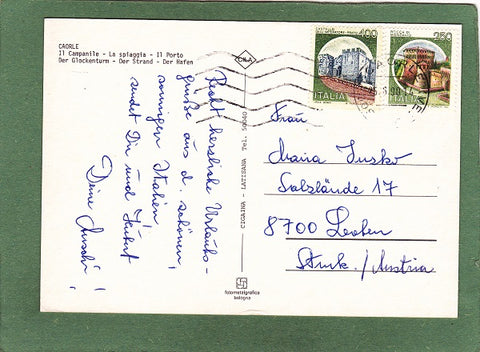 CAORLE
Il Campanile - La spiaggia - Il Porto
Der Glockenturm - Der Strand - Der Hafen
Recht herzliche Urlaubs-
grüße aus d. schönen,
sonnigen Italien,
sendet Dir und Hubert
Deine
CIGAINA - LATISANA Tel. 50040
fotometalgrafica
bologna
400
ITALIA
350
ITALIA
Frau
Maria Jusko
Salzlände 17
8700 Leoben
Stmk. / Austria